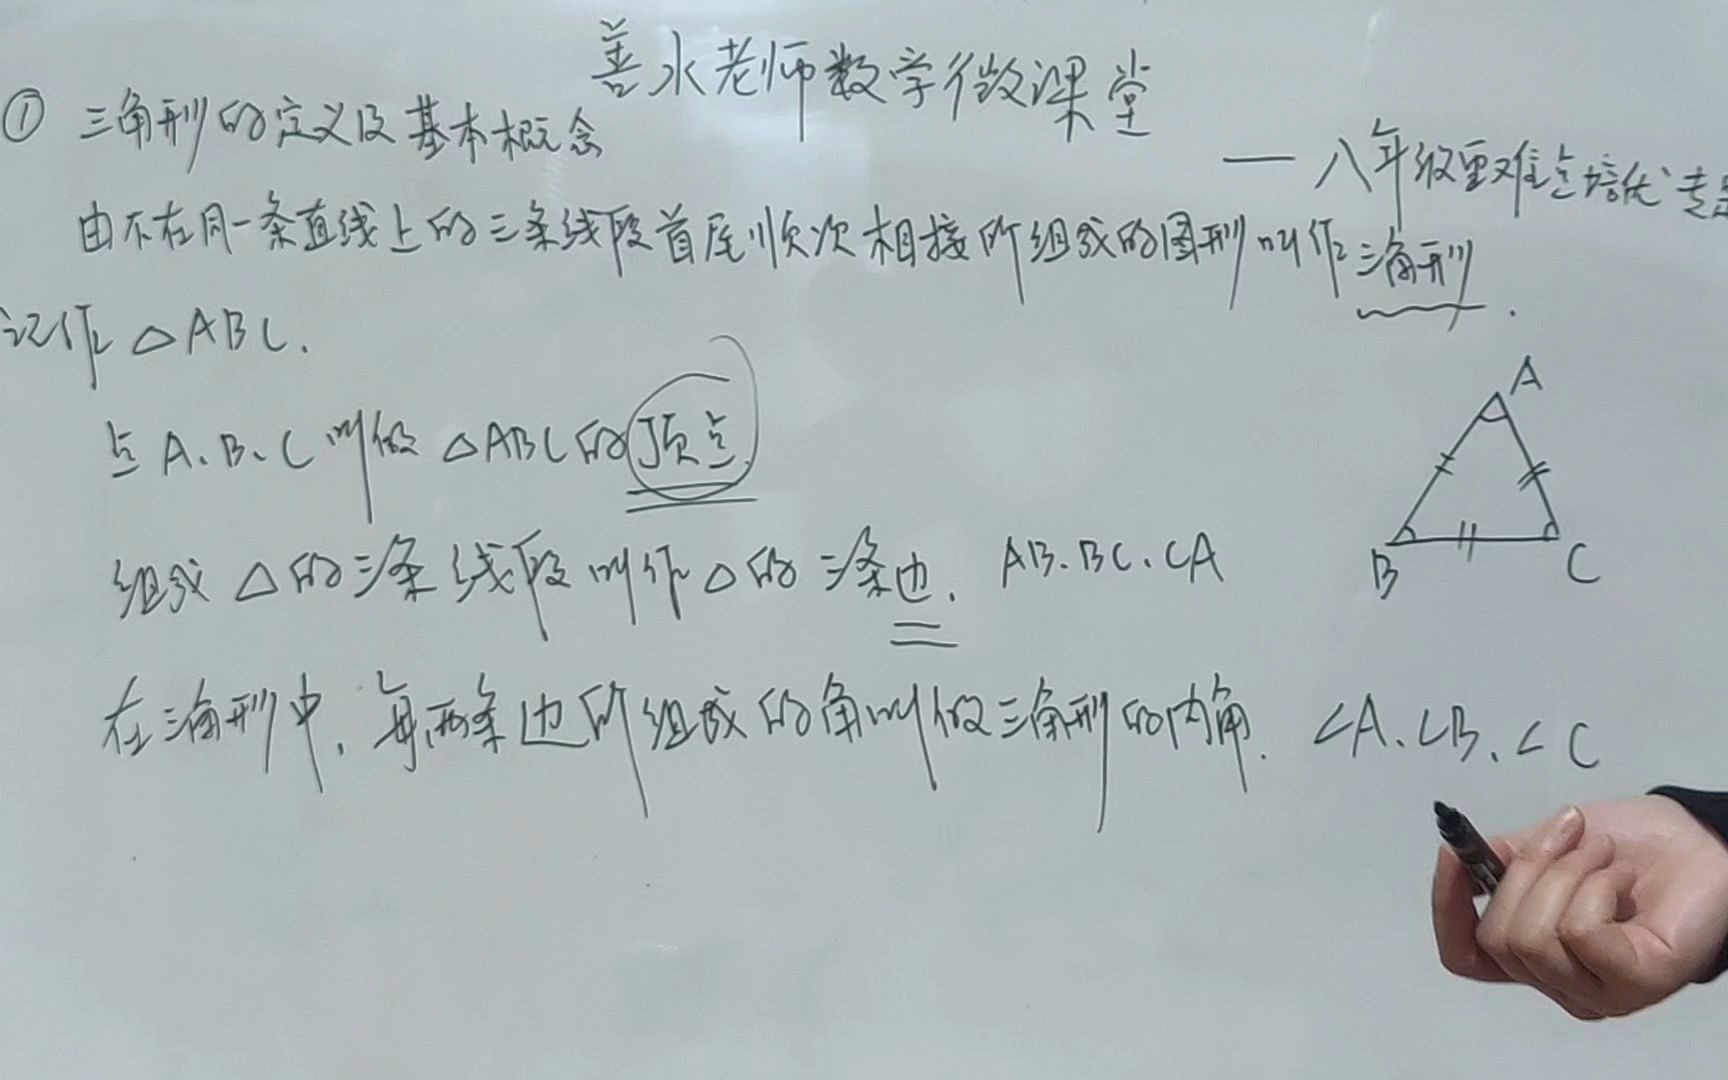 善水老师数学微课堂
——八年级重难点培优专
① 三角形的定义及基本概念
由不在同一条直线上的三条线段首尾顺次相接所组成的图形叫作三角形.
记作 △ABC.
点A、B、C叫做 △ABC的顶点.
组成 △的三条线段叫作△的三条边. AB、BC、CA
在三角形中,每两条边所组成的角叫做三角形的内角. ∠A、∠B、∠C
A
B
C